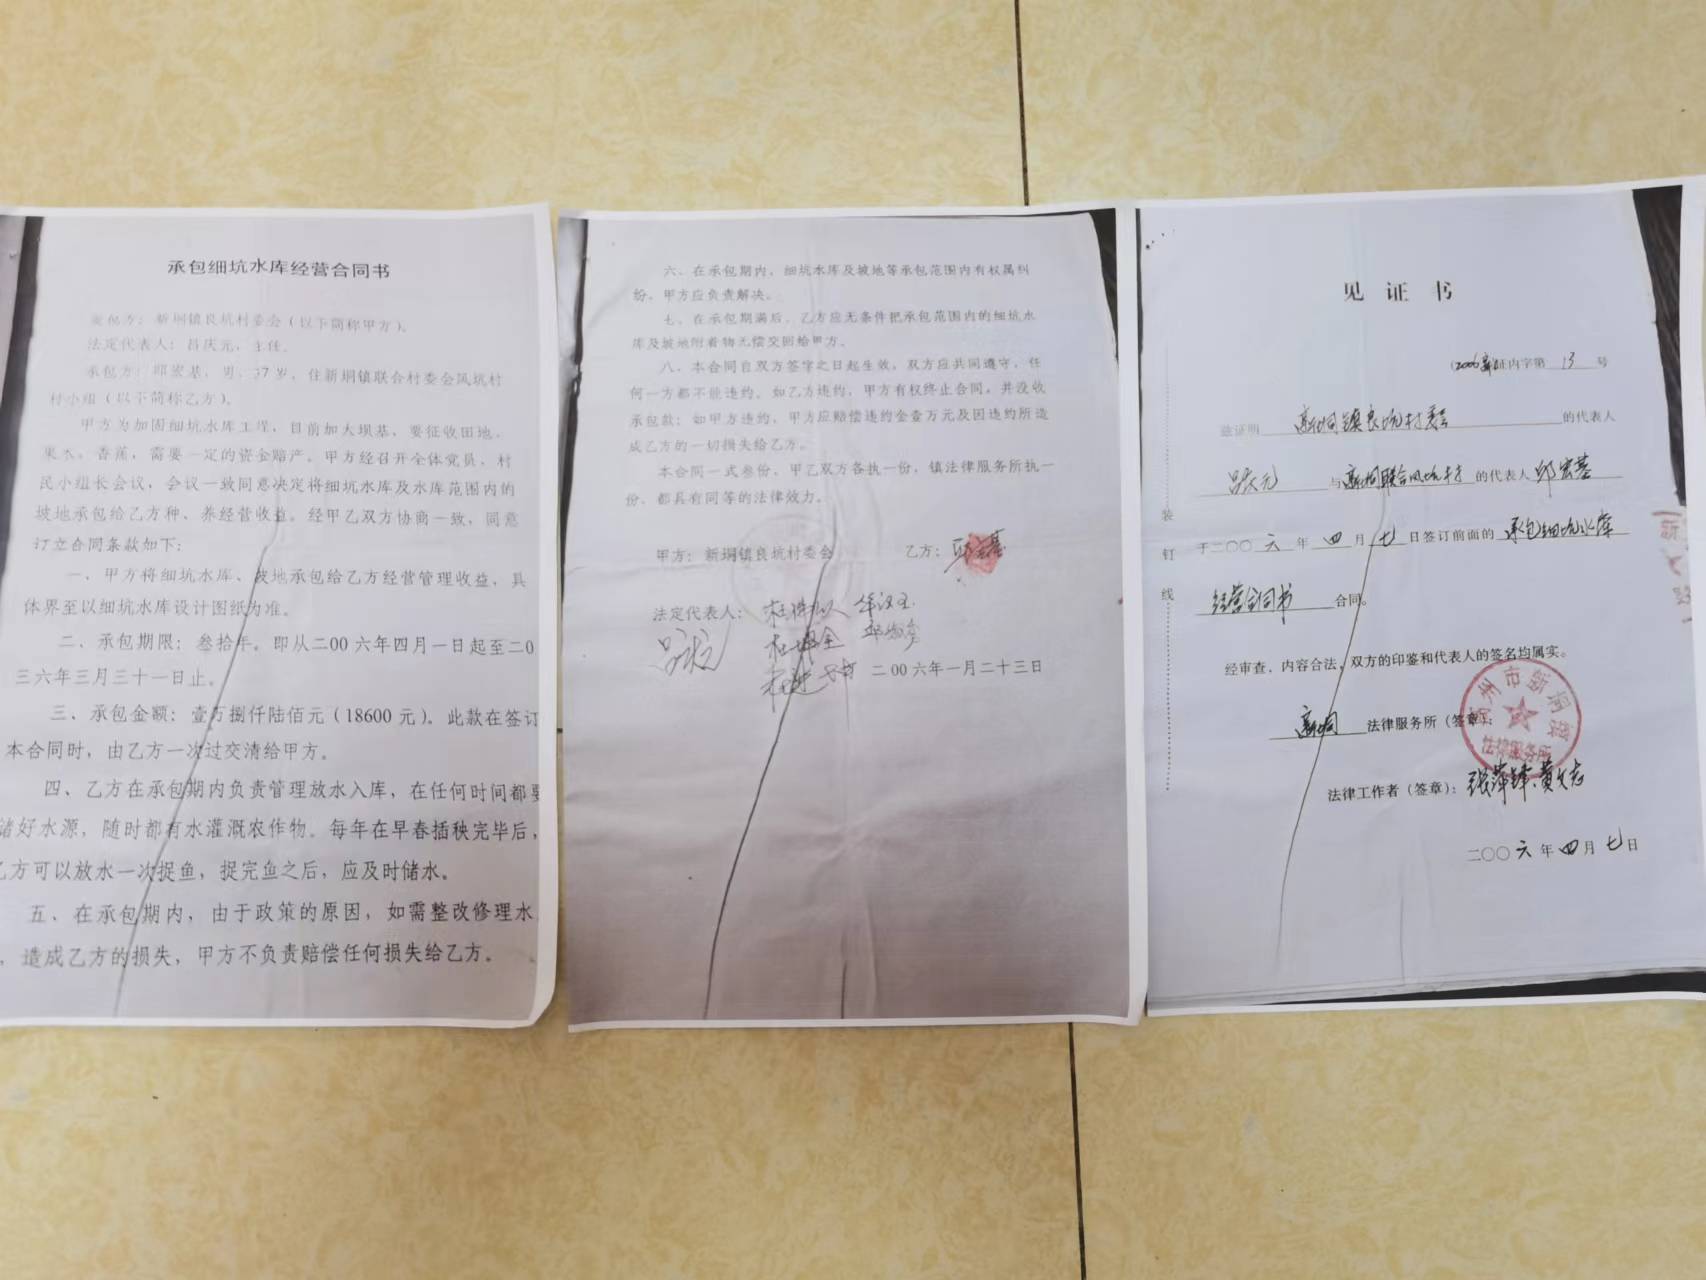 承包细坑水库经营合同书
发包方：新垌镇良坑村委会（以下简称甲方）。
法定代表人：吕庆元，主任。
承包方：邱宏基，男，37岁，住新垌镇联合村委会凤坑村
村小组（以下简称乙方）。
甲方为加固细坑水库工程，目前加大坝基，要征收田地、
果木、香蕉，需要一定的资金赔产。甲方经召开全体党员、村
民小组长会议，会议一致同意决定将细坑水库及水库范围内的
坡地承包给乙方种、养经营收益。经甲乙双方协商一致，同意
订立合同条款如下：
一、甲方将细坑水库、坡地承包给乙方经营管理收益，具
体界至以细坑水库设计图纸为准。
二、承包期限：叁拾年。即从二00六年四月一日起至二0
三六年三月三十一日止。
三、承包金额：壹万捌仟陆佰元（18600元）。此款在签订
本合同时，由乙方一次过交清给甲方。
四、乙方在承包期内负责管理放水入库，在任何时间都要
储好水源，随时都有水灌溉农作物。每年在早春插秧完毕后，
乙方可以放水一次捉鱼，捉完鱼之后，应及时储水。
五、在承包期内，由于政策的原因，如需整改修理水
，造成乙方的损失，甲方不负责赔偿任何损失给乙方。
六、在承包期内，细坑水库及坡地等承包范围内有权属纠
纷，甲方应负责解决。
七、在承包期满后，乙方应无条件把承包范围内的细坑水
库及坡地附着物无偿交回给甲方。
八、本合同自双方签字之日起生效，双方应共同遵守，任
何一方都不能违约。如乙方违约，甲方有权终止合同，并没收
承包款；如甲方违约，甲方应赔偿违约金壹万元及因违约所造
成乙方的一切损失给乙方。
本合同一式叁份，甲乙双方各执一份，镇法律服务所执一
份，都具有同等的法律效力。
甲方：新垌镇良坑村委会 乙方：邱宏基
法定代表人：
吕庆元
二00六年一月二十三日
见证书
（2006）新证内字第13号
兹证明 新垌镇良坑村委会 的代表人
吕庆元 与 新垌联合凤坑村 的代表人 邱宏基
于二〇〇六年四月七日签订前面的 承包细坑水库
经营合同书 合同。
经审查，内容合法，双方的印鉴和代表人的签名均属实。
新垌 法律服务所（签章）：
州市新垌镇
法律服务所
法律工作者（签章）：张萍锋、黄文志
二〇〇六年四月七日
装
钉
线